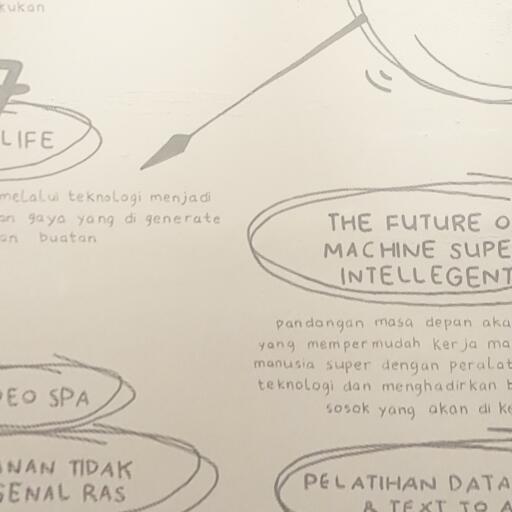 kukan
LIFE
melalui teknologi menjadi
an gaya yang di generate
an buatan
THE FUTURE O
MACHINE SUPE
INTELLEGENT
pandangan masa depan aka
yang mempermudah kerja ma
manusia super dengan peralat
teknologi dan menghadirkan b
sosok yang akan di ke
DEO SPA
ANAN TIDAK
GENAL RAS
PELATIHAN DATA
& TEXT TO A